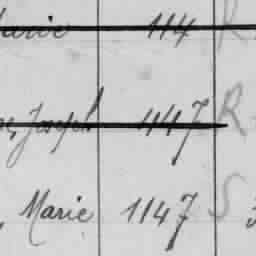 Marie 114 R
Joseph 447 R
, Marie 1147 S